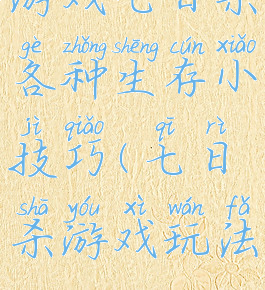 游戏七日杀
gè zhǒng shēng cún xiǎo
各种生存小
jì qiǎo qī rì
技巧(七日
shā yóu xì wán fǎ
杀游戏玩法